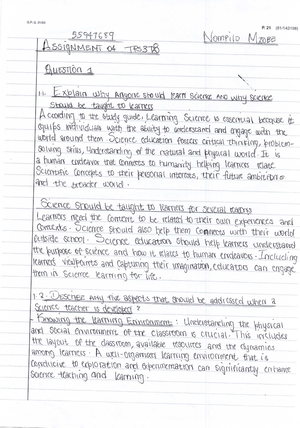 55947689 Nompilo Mzobe
Assignment 04 TPS3703
Question 1
1.1 Explain why anyone should learn science and why science
should be taught to learners
According to the study guide, Learning Science is essential because it
equips individuals with the ability to understand and engage with the
world around them Science education fosters critical thinking, problem-
solving skills, understanding of the natural and physical world. It is
a human endeavor that connects to humanity, helping learners relate
Scientific concepts to their personal interests, their future ambitions
and the broader world.
Science should be taught to learners for several reasons
Learners need the content to be related to their own experiences and
contexts. Science should also help them connects with their world
outside school. Science education should help learners understand
the purpose of science and how it relates to human endeavors. Including
learners viewpoints and capturing their imagination, educators can engage
them in science learning for life.
1.2 Describe any five aspects that should be addressed when a
Science teacher is developed?
Knowing the learning Environment: Understanding the physical
and social environment of the classroom is crucial. This includes
the layout of the classroom, available resources and the dynamics
among learners. A well-organised learning environment that is
conducive to exploration and experimentation can significantly enhance
science teaching and learning.